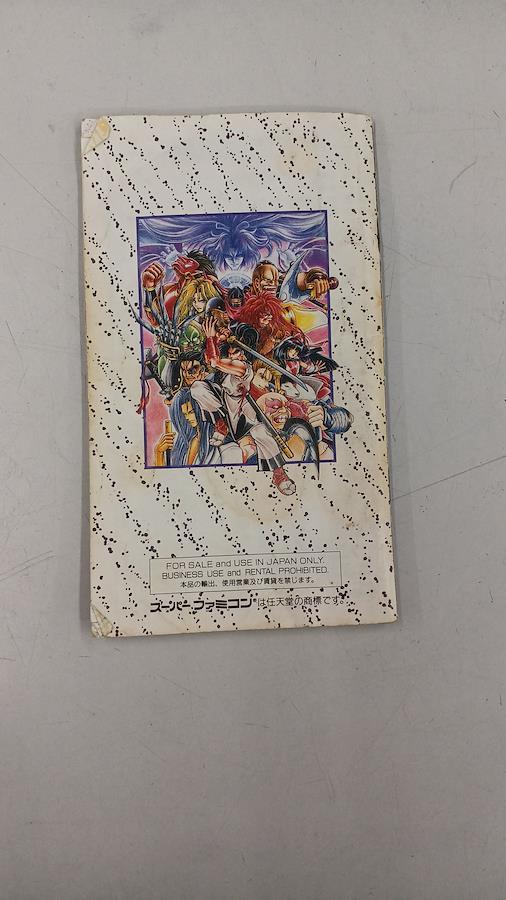 FOR SALE and USE IN JAPAN ONLY.
BUSINESS USE and RENTAL PROHIBITED.
本品の輸出、使用営業及び賃貸を禁じます。
スーパーファミコン®は任天堂の商標です。